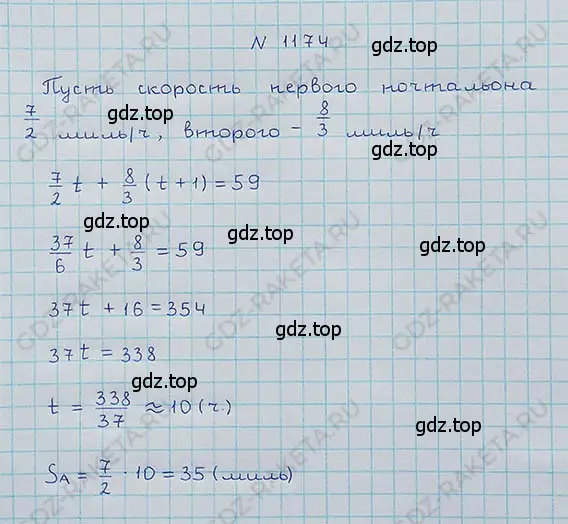 N 1174
gdz.top
Пусть скорость первого почтальона
gdz.top
7/2 миль/ч, второго – 8/3 миль/ч
gdz.top
7/2 t + 8/3 (t+1) = 59
gdz.top gdz.top gdz.top
37/6 t + 8/3 = 59
37t + 16 = 354
gdz.top
37t = 338
gdz.top
t = 338/37 ≈ 10 (ч.)
gdz.top
S_A = 7/2 · 10 = 35 (миль)
GDZ-RAKETA.RU
GDZ-RAKETA.RU
GDZ-RAKETA.RU
GDZ-RAKETA.RU
GDZ-RAKETA.RU
GDZ-RAKETA.RU